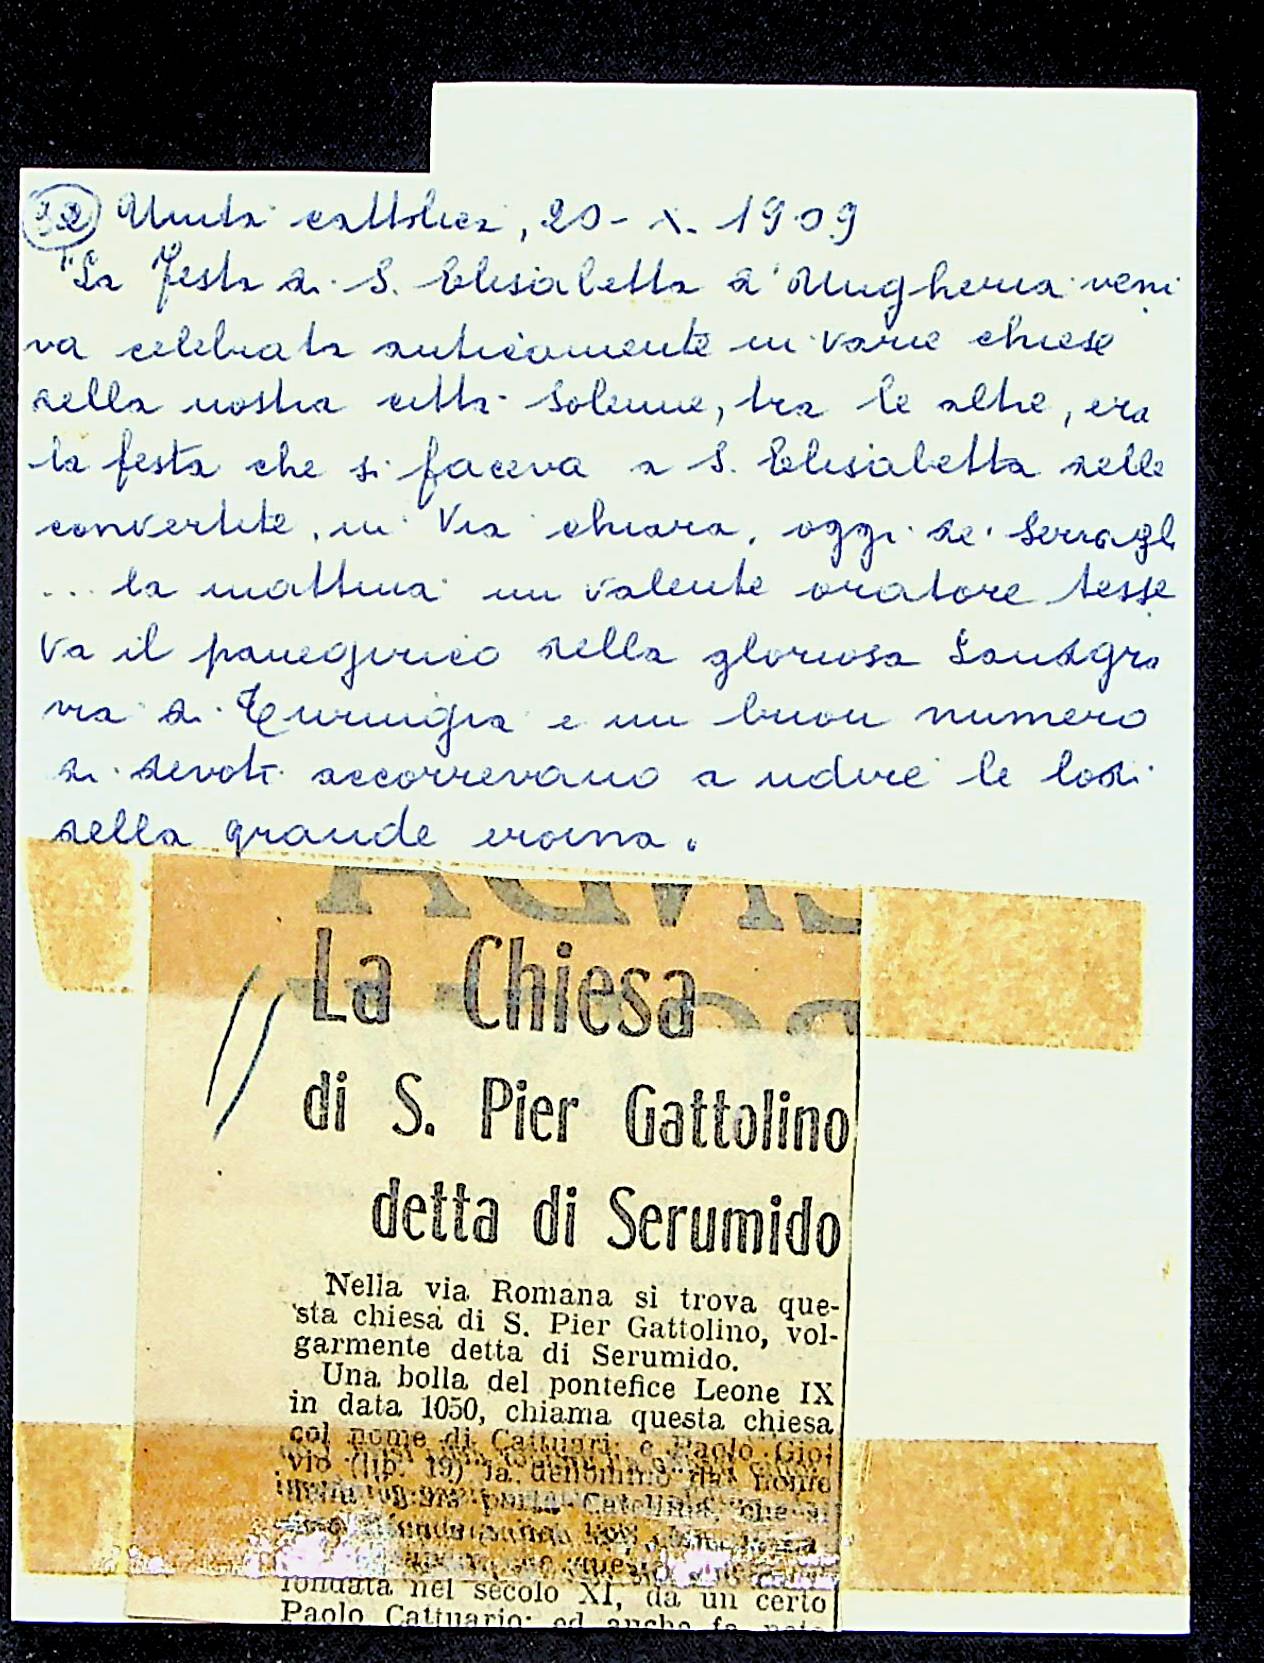 32 Unità cattolica, 20-X. 1909
"La festa di S. Elisabetta d'Ungheria veni
va celebrata anticamente in varie chiese
della nostra città. Solenne, tra le altre, era
la festa che si faceva a S. Elisabetta delle
convertite, in Via chiara, oggi de' Serragli
... la mattina un valente oratore tesse
va il panegirico della gloriosa Landgra
via di Turingia e un buon numero
di devoti accorrevano a udire le lodi
della grande eroina.
La Chiesa
di S. Pier Gattolino
detta di Serumido
Nella via Romana si trova que-
sta chiesa di S. Pier Gattolino, vol-
garmente detta di Serumido.
Una bolla del pontefice Leone IX
in data 1050, chiama questa chiesa
col nome di Cattuari; e Paolo Gio-
vio (lib. 19) la denominò dal nome
porta Catellina, che si
fondata nel secolo XI, da un certo
Paolo Cattuario; ed anche fa